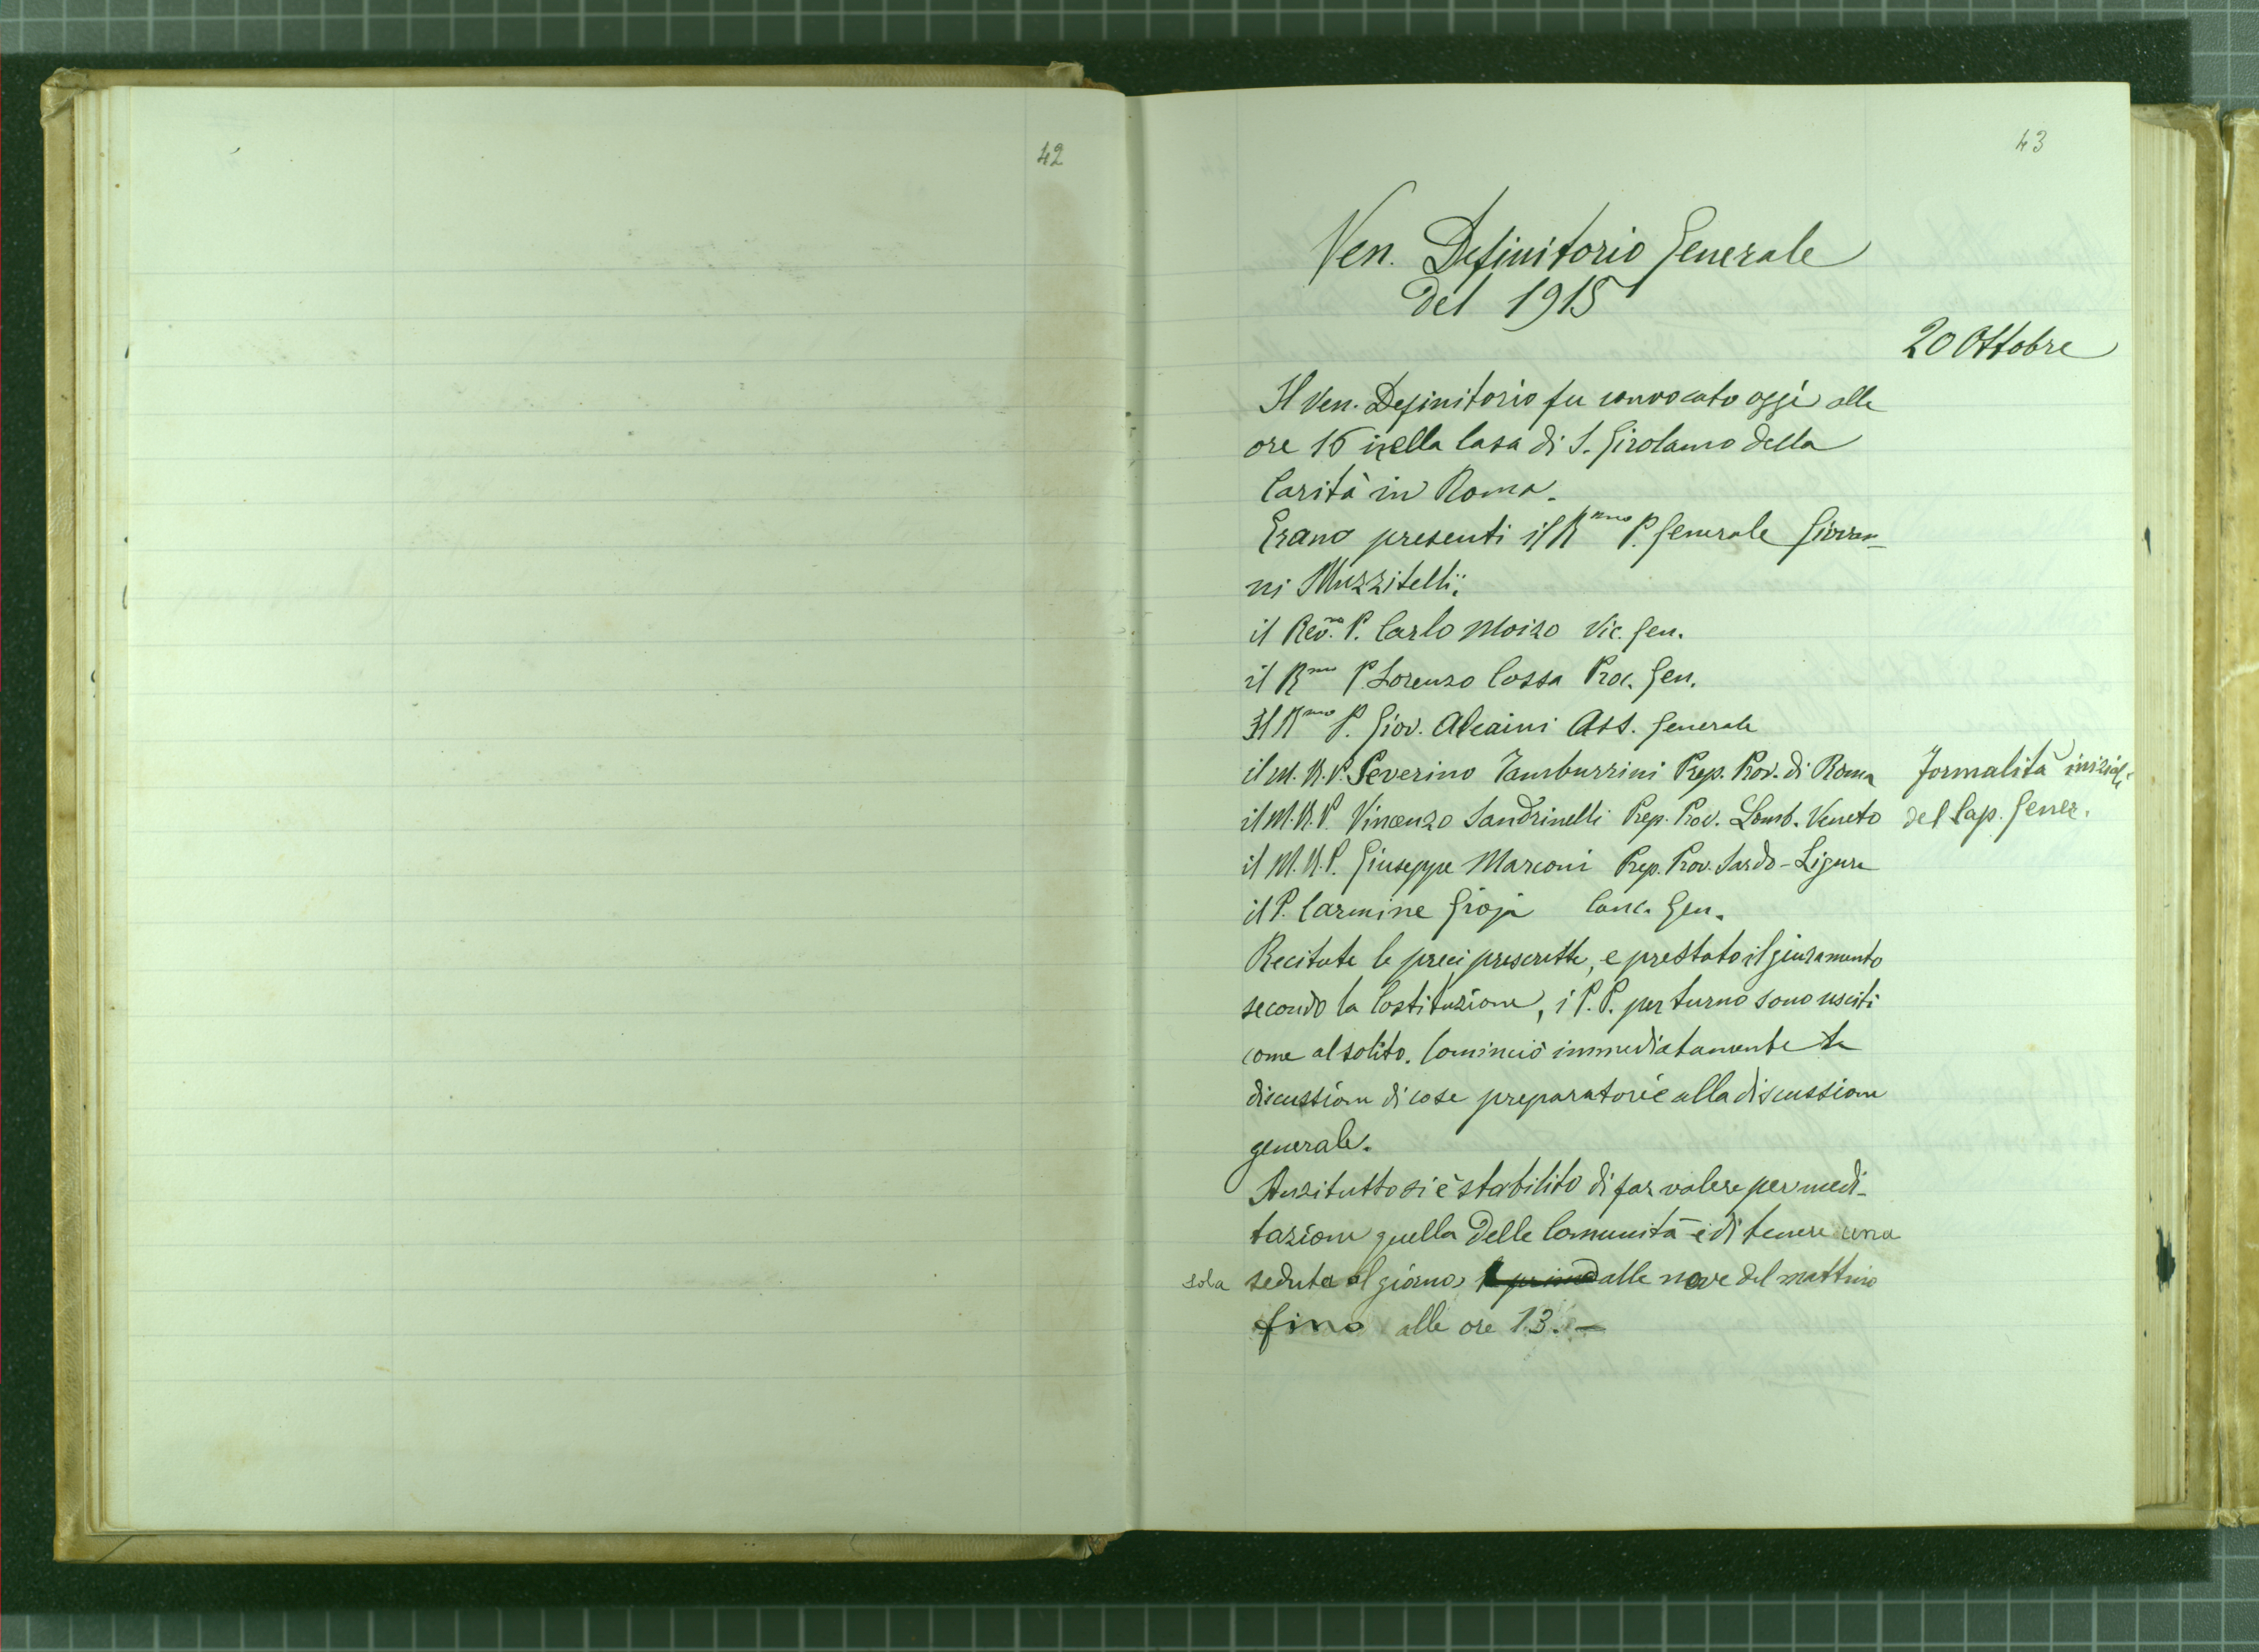 42
43
Ven. Definitorio Generale
del 1915
20 Ottobre
Il Ven. Definitorio fu convocato oggi alle
ore 16 nella Casa di S. Girolamo della
Carità in Roma.
Erano presenti il Rmo P. Generale Giovan-
ni Muzzitelli;
il Rev.mo P. Carlo Moizo Vic. Gen.
il Rmo P. Lorenzo Cossa Proc. Gen.
Il Rmo P. Giov. Alcaini Ass. Generale
il M. R. P. Severino Tamburrini Prep. Prov. di Roma
Formalità iniziali
il M. R. P. Vincenzo Sandrinelli Prep. Prov. Lomb. Veneto
del Cap. Gener.
il M. R. P. Giuseppe Marconi Prep. Prov. Sardo-Ligure
il P. Carmine Gioja Canc. Gen.
Recitate le preci prescritte, e prestato il giuramento
secondo la Costituzione, i P. P. per turno sono usciti
come al solito. Cominciò immediatamente la
discussione di cose preparatorie alla discussione
generale.
Anzitutto si è stabilito di far valere per medi-
tazione quella delle Comunità e di tenere una
sola seduta al giorno, dalle nove del mattino
fino alle ore 13. —